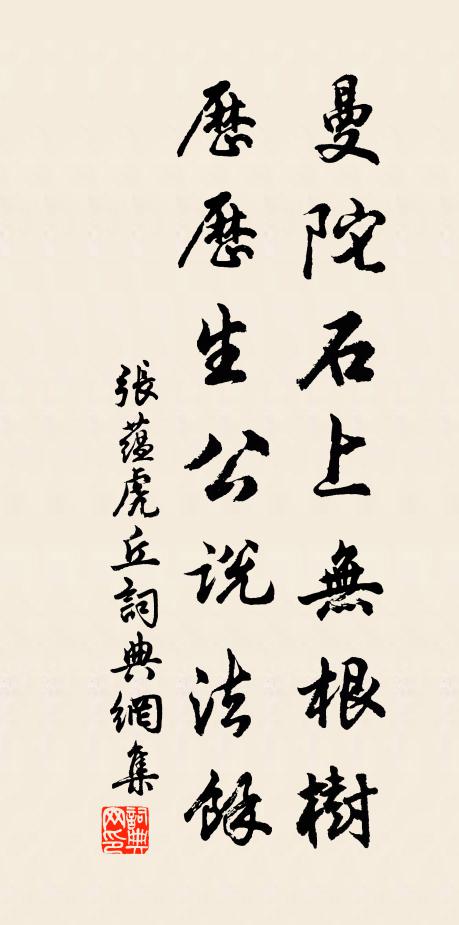 曼陀石上無根樹
歷歷生公說法餘
張蘊虎丘詞典網集
詞典網印